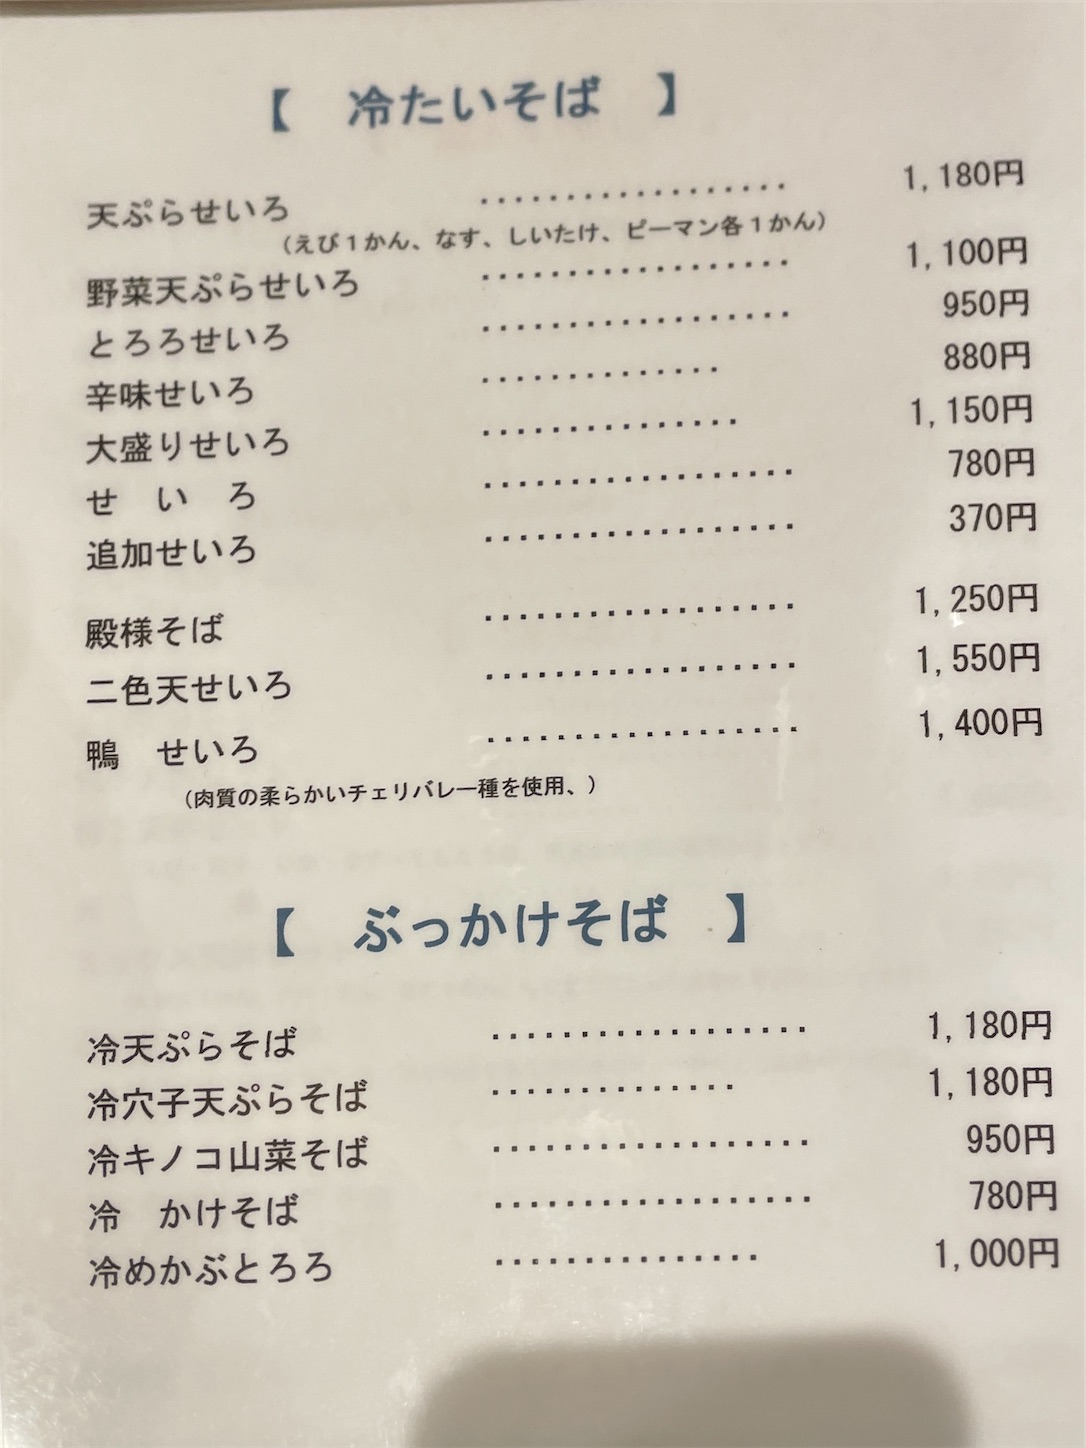 【 冷たいそば 】
天ぷらせいろ ‥‥‥‥‥‥‥‥‥ 1,180円
(えび1かん、なす、しいたけ、ピーマン各1かん)
野菜天ぷらせいろ ‥‥‥‥‥‥‥‥‥ 1,100円
とろろせいろ ‥‥‥‥‥‥‥‥‥ 950円
辛味せいろ ‥‥‥‥‥‥‥ 880円
大盛りせいろ ‥‥‥‥‥‥‥‥ 1,150円
せ い ろ ‥‥‥‥‥‥‥‥‥ 780円
追加せいろ ‥‥‥‥‥‥‥‥‥ 370円
殿様そば ‥‥‥‥‥‥‥‥‥ 1,250円
二色天せいろ ‥‥‥‥‥‥‥‥‥ 1,550円
鴨 せいろ ‥‥‥‥‥‥‥‥‥ 1,400円
(肉質の柔らかいチェリバレー種を使用、)
【 ぶっかけそば 】
冷天ぷらそば ‥‥‥‥‥‥‥‥‥ 1,180円
冷穴子天ぷらそば ‥‥‥‥‥‥‥ 1,180円
冷キノコ山菜そば ‥‥‥‥‥‥‥‥‥ 950円
冷 かけそば ‥‥‥‥‥‥‥‥‥ 780円
冷めかぶとろろ ‥‥‥‥‥‥‥‥ 1,000円